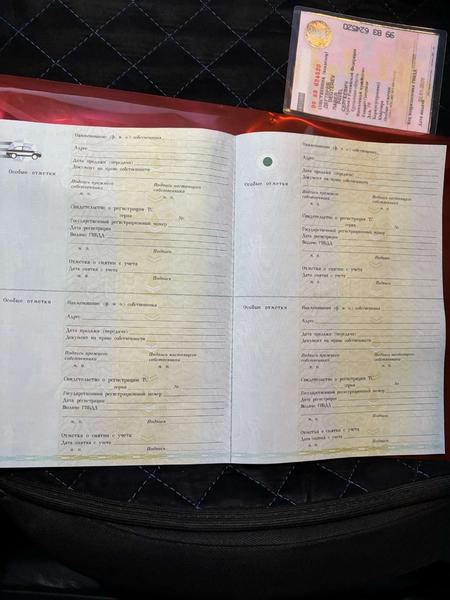 99 83 624520
Особые отметки
Наименование (ф. и. о.) собственника
Адрес
Дата продажи (передачи)
Документ на право собственности
Подпись прежнего собственника
Подпись настоящего собственника
М. П.
М. П.
Свидетельство о регистрации ТС
серия №
Государственный регистрационный номер
Дата регистрации
Выдано ГИБДД
М. П. Подпись
Отметка о снятии с учета
Дата снятия с учета
М. П. Подпись
Особые отметки
Наименование (ф. и. о.) собственника
Адрес
Дата продажи (передачи)
Документ на право собственности
Подпись прежнего собственника
Подпись настоящего собственника
М. П.
М. П.
Свидетельство о регистрации ТС
серия №
Государственный регистрационный номер
Дата регистрации
Выдано ГИБДД
М. П. Подпись
Отметка о снятии с учета
Дата снятия с учета
М. П. Подпись
Особые отметки
Наименование (ф. и. о.) собственника
Адрес
Дата продажи (передачи)
Документ на право собственности
Подпись прежнего собственника
Подпись настоящего собственника
М. П.
М. П.
Свидетельство о регистрации ТС
серия №
Государственный регистрационный номер
Дата регистрации
Выдано ГИБДД
М. П. Подпись
Отметка о снятии с учета
Дата снятия с учета
М. П. Подпись
Особые отметки
Наименование (ф. и. о.) собственника
Адрес
Дата продажи (передачи)
Документ на право собственности
Подпись прежнего собственника
Подпись настоящего собственника
М. П.
М. П.
Свидетельство о регистрации ТС
серия №
Государственный регистрационный номер
Дата регистрации
Выдано ГИБДД
М. П. Подпись
Отметка о снятии с учета
Дата снятия с учета
М. П. Подпись